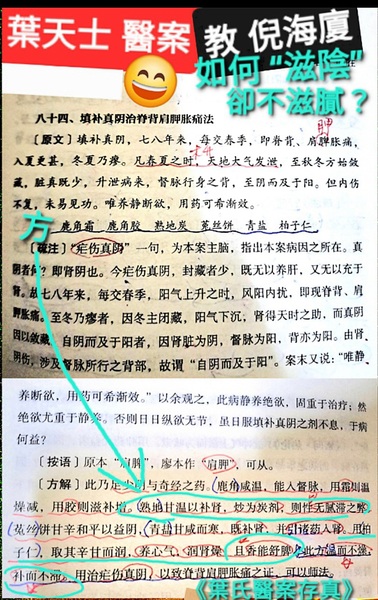 葉天士 醫案 教 倪海廈
如何“滋陰”
卻不滋膩？
八十四、填补真阴治脊背肩胛胀痛法
胛
〔原文〕填补真阴，七八年来，每交春季，即脊背、肩胛胀痛，
入夏更甚，冬夏乃瘳。凡春夏之时，天地大气发泄，至秋冬方始敛
藏，脏真既少，升泄病来，督脉行身之背，至阴而及于阳。但内伤
不复，未易见功。唯养静断欲，用药可希渐效。
方
鹿角霜 鹿角胶 熟地炭 菟丝饼 青盐 柏子仁
〔疏注〕“疟伤真阴”一句，为本案主脑，指出本案病因之所在。真
阴者何？即肾阴也。今疟伤真阴，封藏者少，既无以养肝，又无以充于
肾。故七八年来，每交春季，阳气上升之时，风阳内扰，即现脊背、肩
胛胀痛。至冬乃瘳者，因冬主闭藏，阳气下沉，肾得天时之助，而真阴
因以敛藏。自阴而及于阳者，因肾脏为阴，督脉为阳，背亦为阳。由肾
阴伤，涉及督脉所行之背部，故谓“自阴而及于阳”。案末又说：“唯静
养断欲，用药可希渐效。”以余观之，此病静养绝欲，固重于治疗；然
绝欲尤重于静养。否则日日纵欲无节，虽日服填补真阴之剂不息，于病
何益？
〔按语〕原本“肩脾”，廖本作“肩胛”，可从。
〔方解〕此乃足少阴与奇经之药。鹿角咸温，能入督脉，用霜则温
燥减，用胶则滋补增。熟地甘温以补肾，炒为炭剂，则性无腻滞之弊
菟丝饼甘辛和平以益阴，青盐甘咸而寒，既补肾，并引诸药入肾。用柏
子仁，取其辛甘而润，养心气，润肾燥，且香能舒脾。此方温而不燥，
补而不滞。用治疟伤真阴，以致脊背肩胛胀痛之证，可以师法。
《葉氏醫案存真》